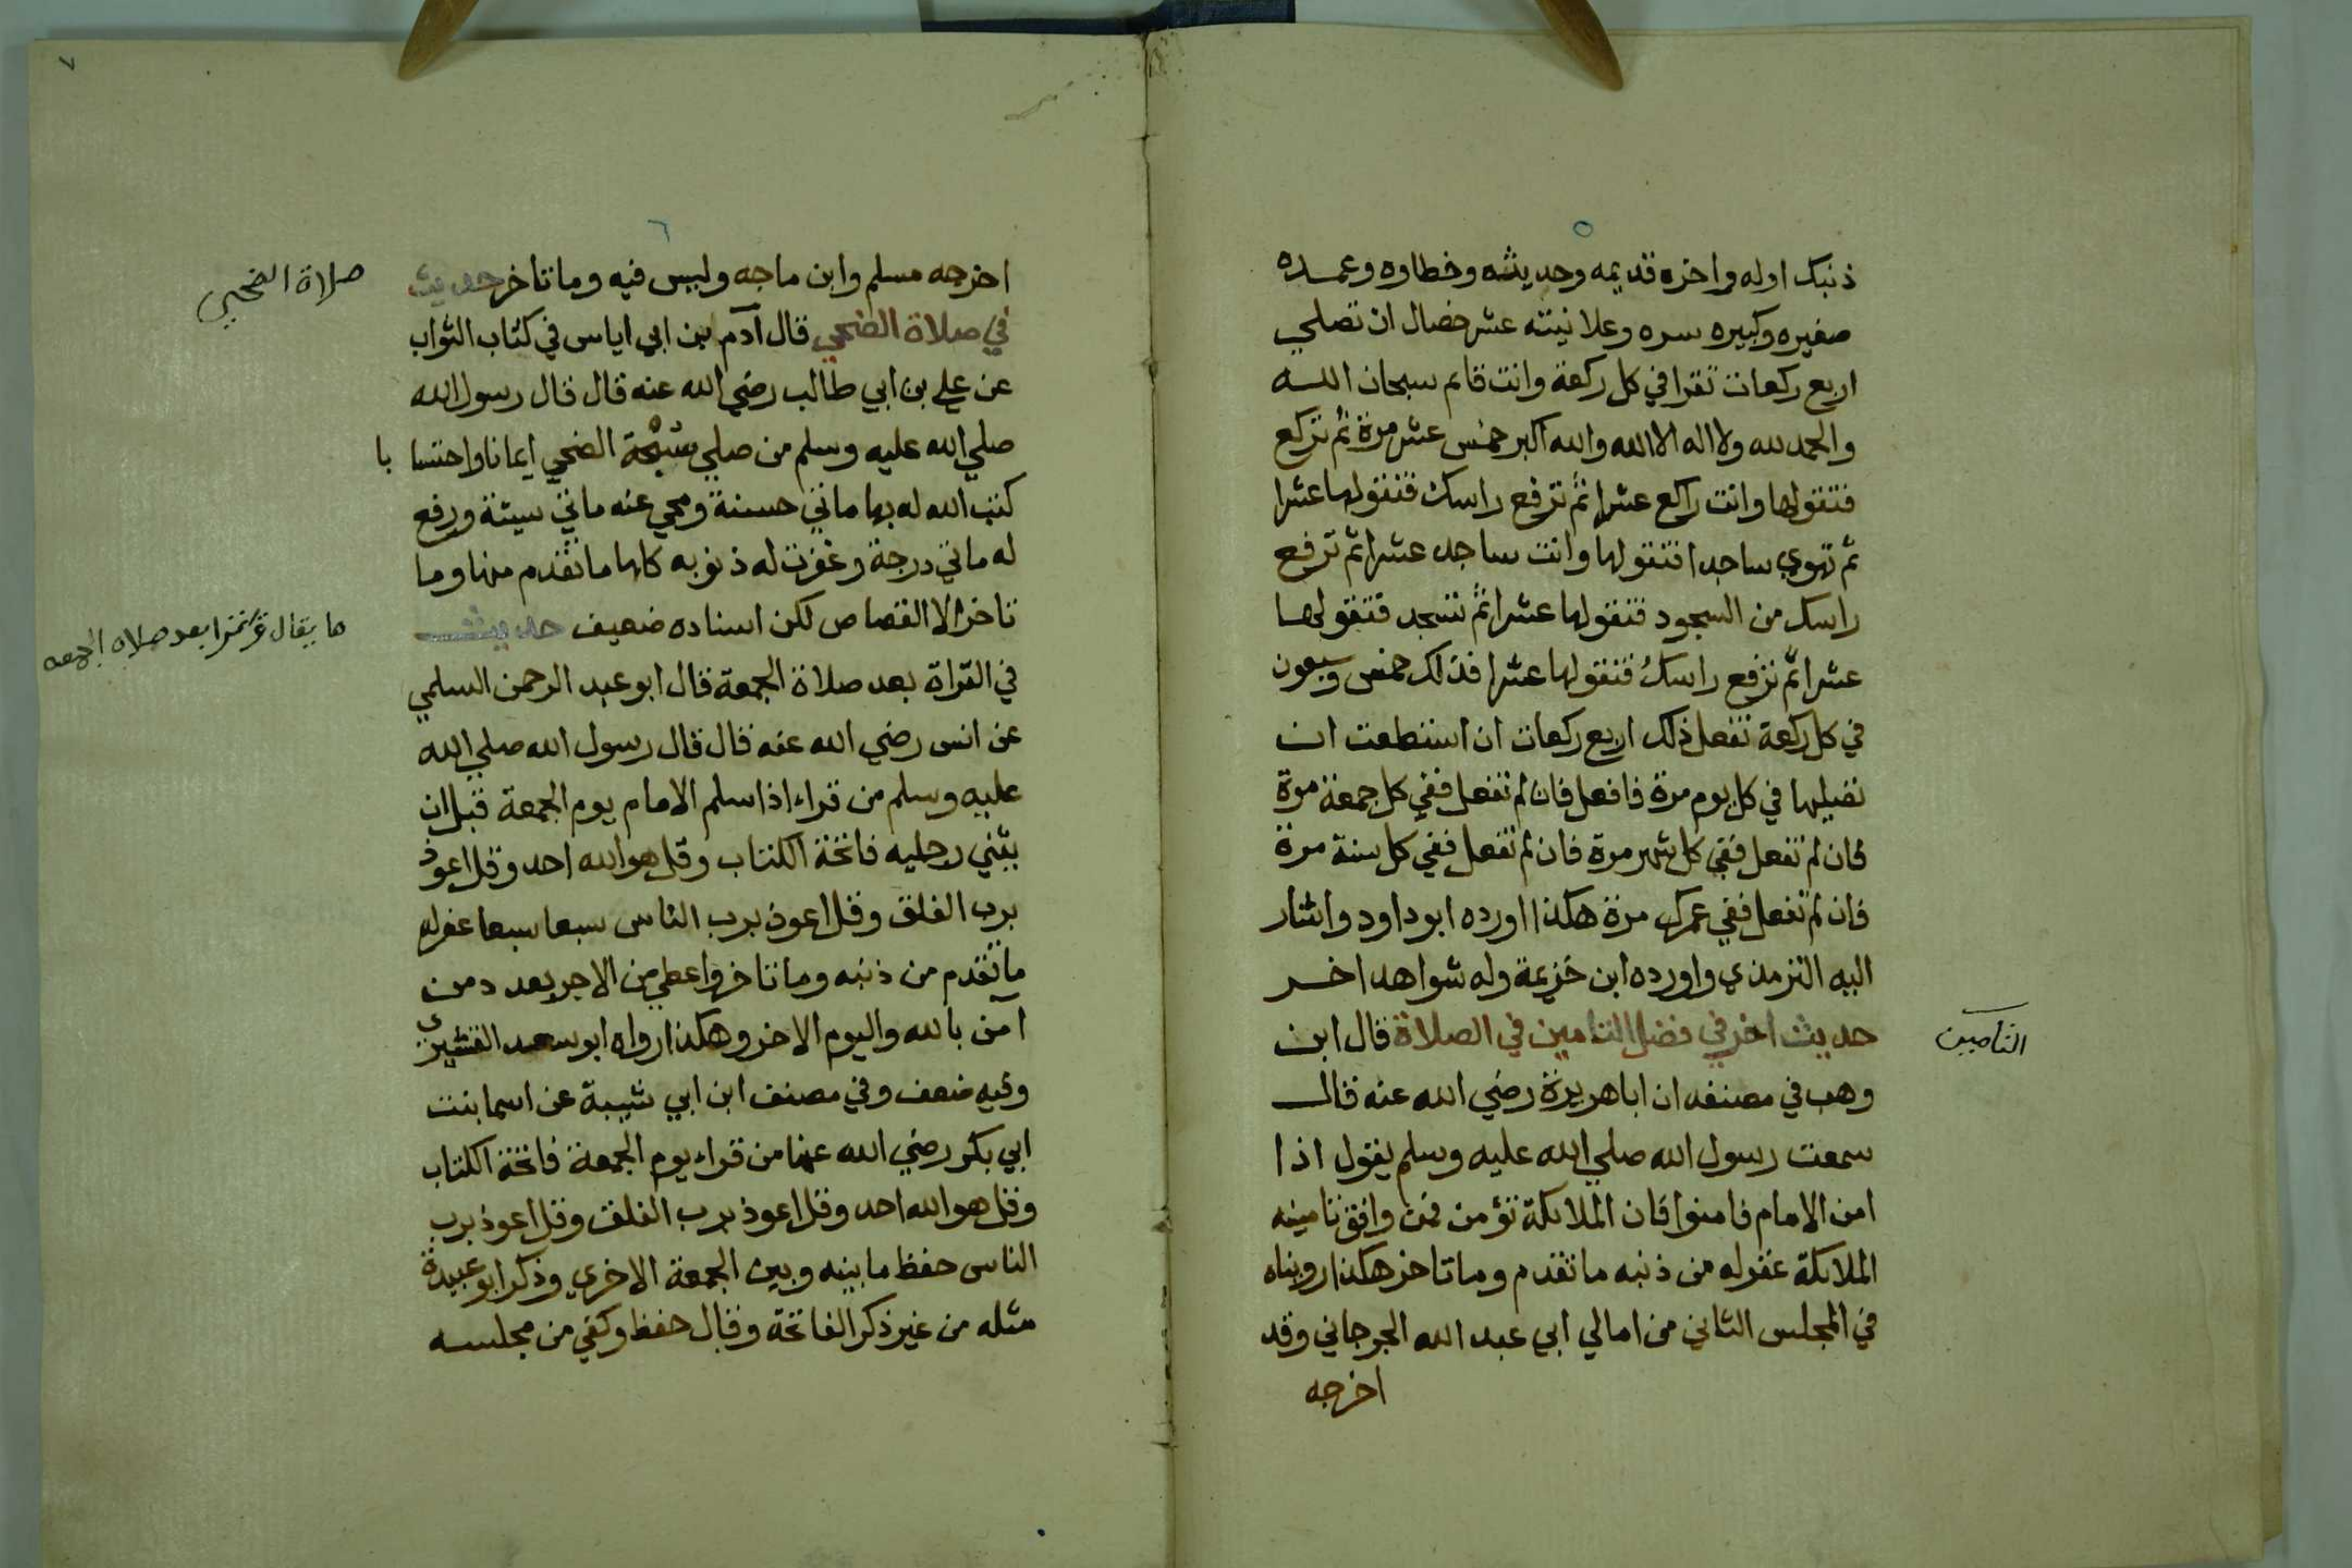 ٥
ذنبك اوله واخره قديمه وحديثه وخطاوه وعمده
صغيره وكبيره سره وعلانيته عشر خصال ان تصلي
اربع ركعات تقرا في كل ركعة وانت قايم سبحان الله
والحمد لله ولا اله الا الله والله اكبر خمس عشر مرة ثم تركع
فتقولها وانت راكع عشرا ثم ترفع راسك فتقولها عشرا
ثم تهوي ساجدا فتقولها وانت ساجد عشرا ثم ترفع
راسك من السجود فتقولها عشرا ثم تسجد فتقولها
عشرا ثم ترفع راسك فتقولها عشرا فذلك خمس وسبعون
في كل ركعة تفعل ذلك اربع ركعات ان استطعت ان
تصليها في كل يوم مرة فافعل فان لم تفعل ففي كل جمعة مرة
فان لم تفعل ففي كل شهر مرة فان لم تفعل ففي كل سنة مرة
فان لم تفعل ففي عمرك مرة هكذا اورده ابو داود واشار
اليه الترمذي واورده ابن خزيمة وله شواهد اخر
حديث اخر في فضل التامين في الصلاة قال ابن
التامين
وهب في مصنفه ان ابا هريرة رضي الله عنه قال
سمعت رسول الله صلي الله عليه وسلم يقول اذا
امن الامام فامنوا فان الملايكة تؤمن فمن وافق تامينه
الملايكة غفر له من ذنبه ما تقدم وما تاخر هكذا رويناه
في المجلس الثاني من امالي ابي عبد الله الجرجاني وقد
اخرجه
٧
٦
اخرجه مسلم وابن ماجه وليس فيه وما تاخر حديث
صلاة الضحي
في صلاة الضحي قال آدم بن ابي اياس في كتاب الثواب
عن علي بن ابي طالب رضي الله عنه قال قال رسول الله
صلي الله عليه وسلم من صلي سبحة الضحي ايمانا واحتسا با
كتب الله له بها مائتي حسنة ومحي عنه مائتي سيئة ورفع
له مائتي درجة وغفرت له ذنوبه كلها ما تقدم منها وما
تاخر الا القصاص لكن اسناده ضعيف حديث
ما يقال بعد صلاه الجمعه
في القراة بعد صلاة الجمعة قال ابو عبد الرحمن السلمي
عن انس رضي الله عنه قال قال رسول الله صلي الله
عليه وسلم من قراء اذا سلم الامام يوم الجمعة قبل ان
يثني رجليه فاتحة الكتاب وقل هو الله احد وقل اعوذ
برب الفلق وقل اعوذ برب الناس سبعا سبعا غفر له
ما تقدم من ذنبه وما تاخر واعطي من الاجر بعد د من
آمن بالله واليوم الاخر وهكذا رواه ابو سعد القشيري
وفيه ضعف وفي مصنف ابن ابي شيبة عن اسما بنت
ابي بكر رضي الله عنها من قراء يوم الجمعة فاتحة الكتاب
وقل هو الله احد وقل اعوذ برب الفلق وقل اعوذ برب
الناس حفظ ما بينه وبين الجمعة الاخري وذكر ابو عبيدة
مثله من غير ذكر الفاتحة وقال حفظ وكفي من مجلسه